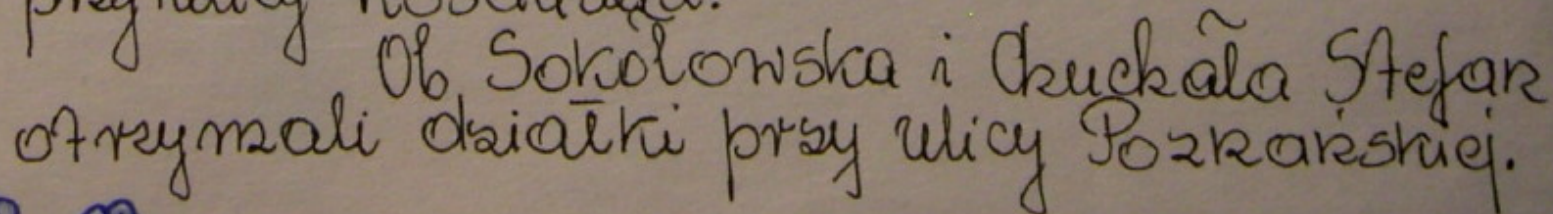 Ob. Sokołowska i Chuchała Stefan
otrzymali działki przy ulicy Poznańskiej.